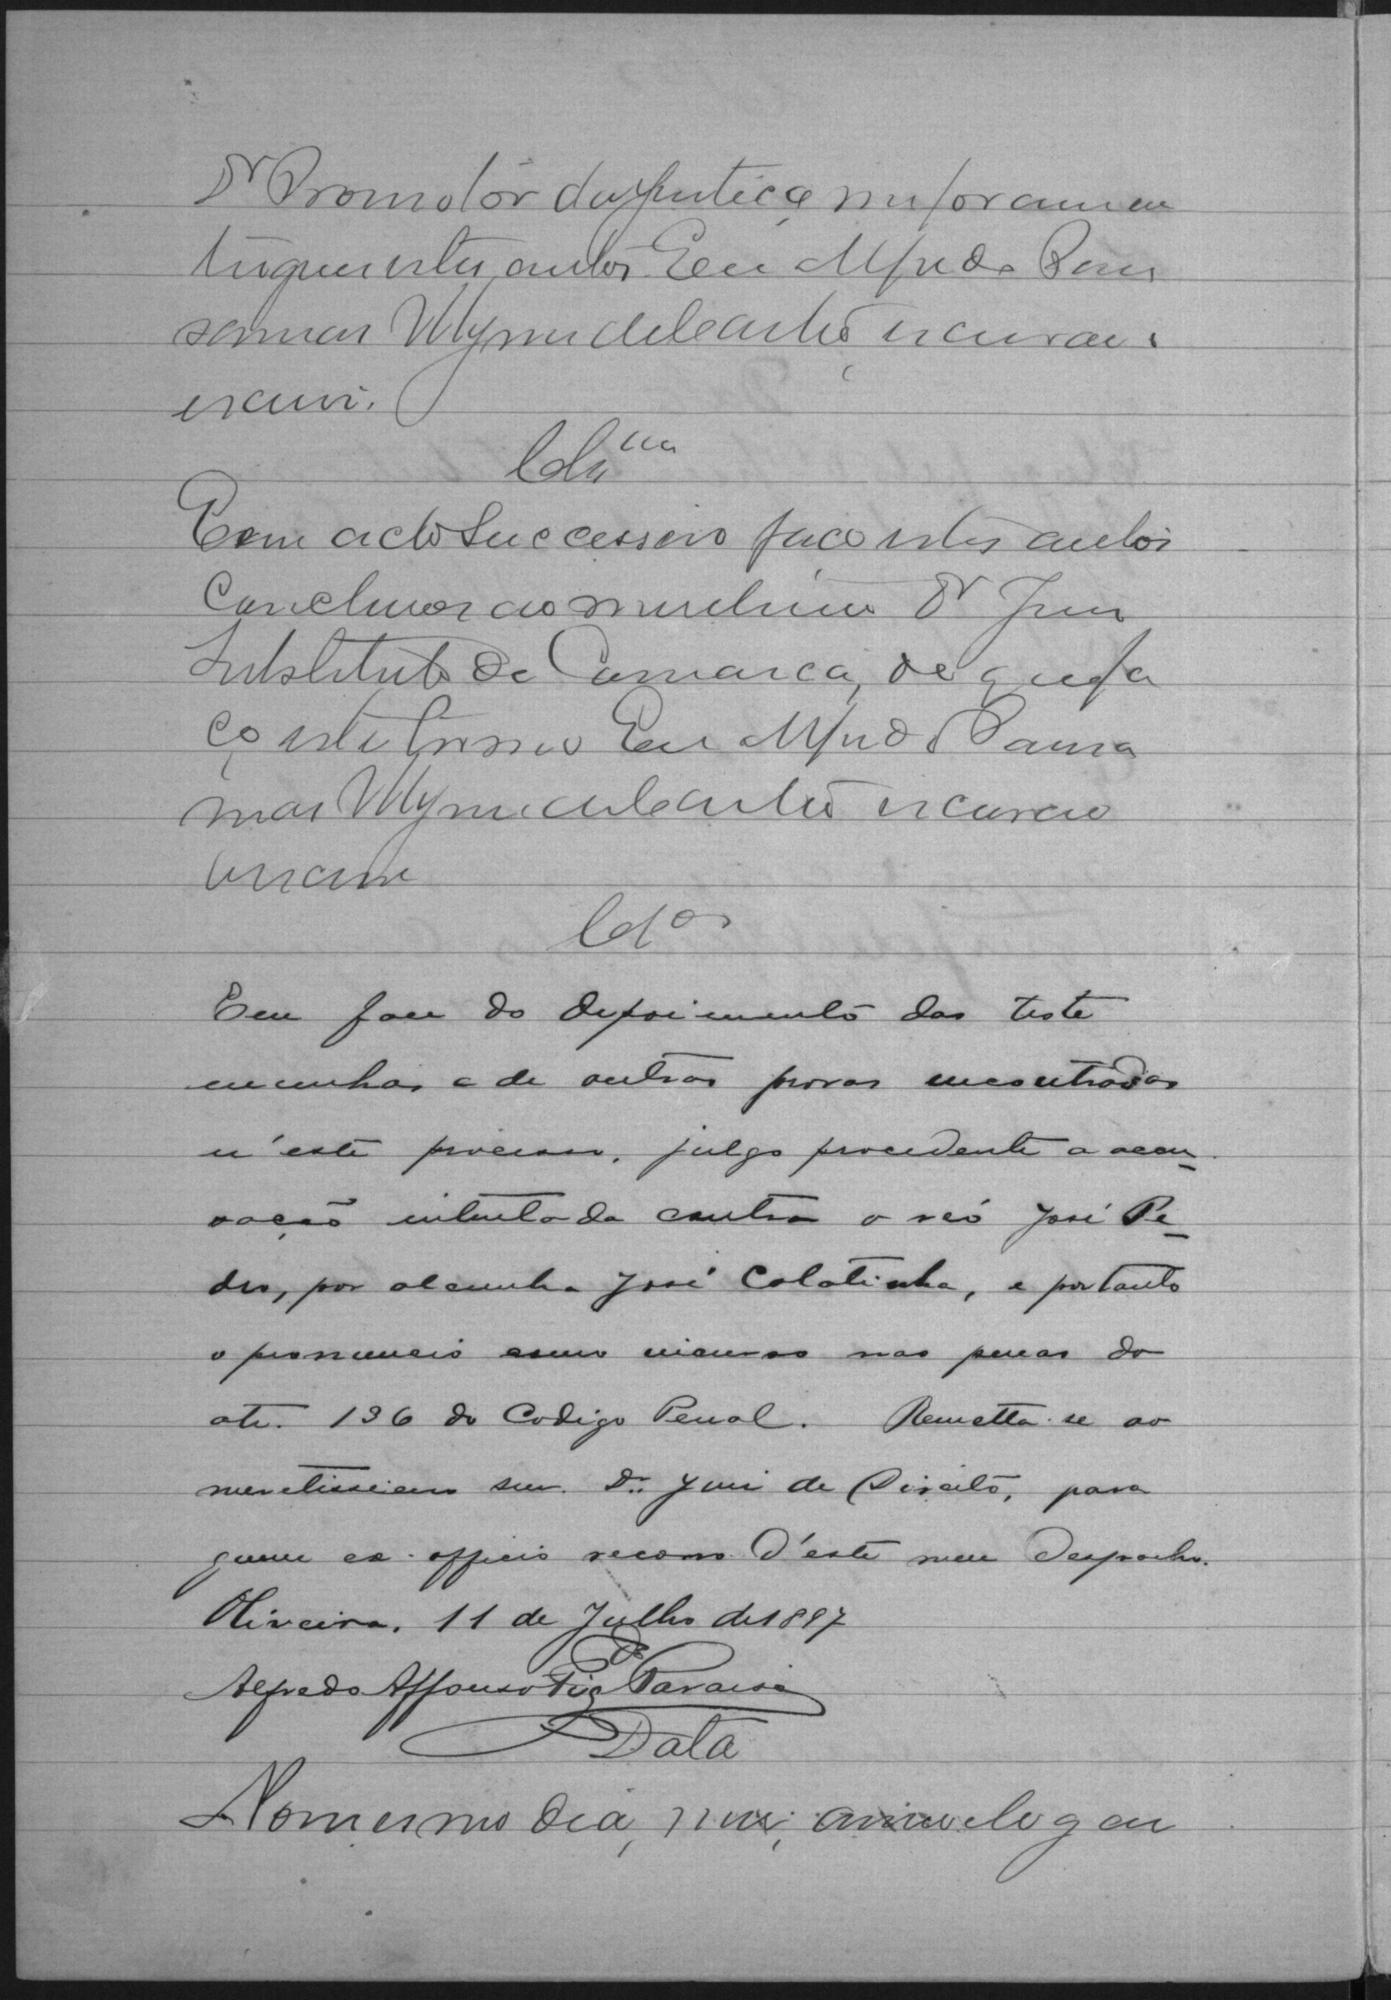 Dr Promotor da Justiça me foram en
tregues estes autos. Eu Alfredo
escrivão o
escrevi.
Clsm
E em acto successivo faço estes autos
conclusos ao meretissimo Dr Juiz
Substituto da Comarca, de que fa
ço este termo Eu Alfredo
escrivão
escrevi
Cls
Em face do depoimento das teste
munhas e de outras provas encontradas
n'este processo, julgo procedente a accu-
sação intentada contra o réo José Pe-
dro, por alcunha José Calatinha, e portanto
o pronuncio como incurso nas penas do
art. 136 do Codigo Penal. Remetta-se ao
meretissimo snr. Dr. Juiz de Direito, para
quem ex-officio recorro d'este meu despacho.
Oliveira, 11 de Julho de 1897
Alfredo Affonso Paraiso
Data
No mesmo dia, mez, anno e logar